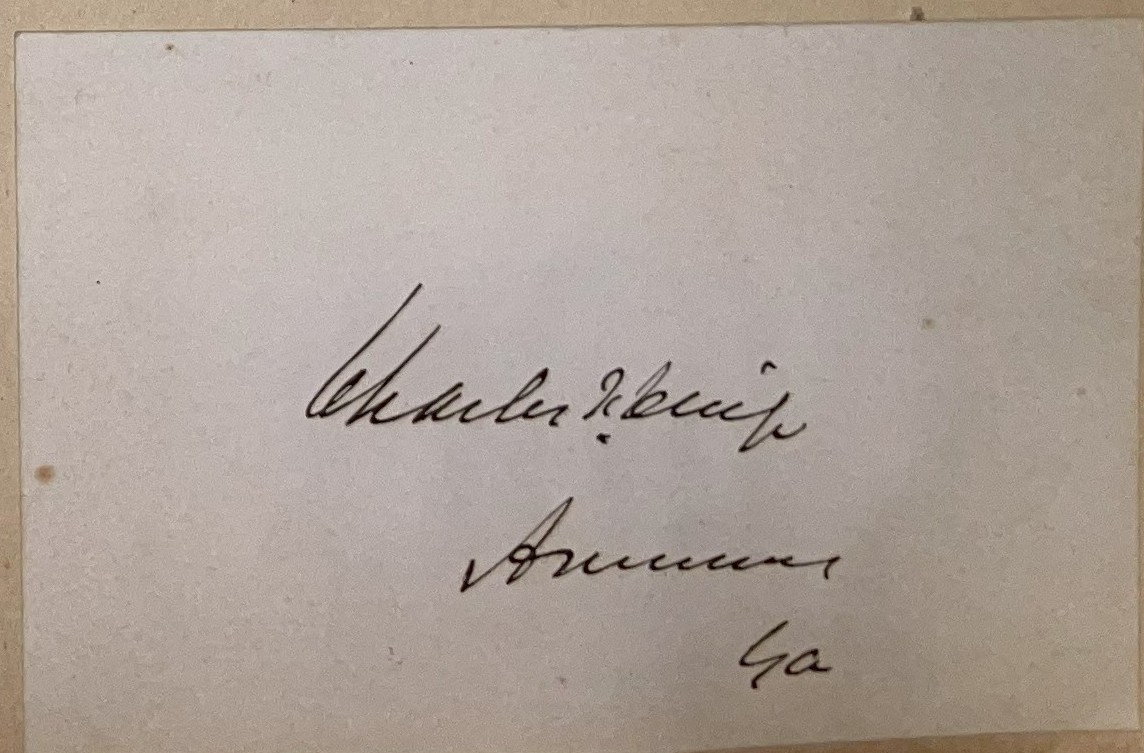 Charles F. Crisp
Americus
Ga